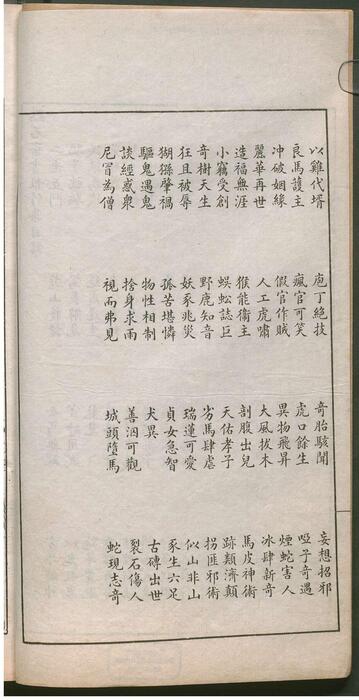 以雞代壻　庖丁絕技　奇胎駭聞　妄想招邪
良馬護主　瘋官可笑　虎口餘生　啞子奇遇
冲破姻緣　假官作賊　異物飛昇　煙蛇害人
麗華再世　人工虎嘯　大風拔木　冰肆新奇
造福無涯　猴能衛主　剖腹出兒　馬皮神術
小竊受創　蜈蚣誌巨　天佑孝子　跡類濟顛
奇樹天生　野鹿知音　劣馬肆虐　拐匪邪術
狂且被辱　妖豕兆災　瑞蓮可愛　似山非山
猢猻肇禍　孤苦堪憐　貞女急智　豕生六足
驅鬼遇鬼　物性相制　犬異　古磚出世
談經惑衆　捨身求雨　善泅可觀　裂石傷人
尼冒為僧　視而弗見　城頭墮馬　蛇現志奇